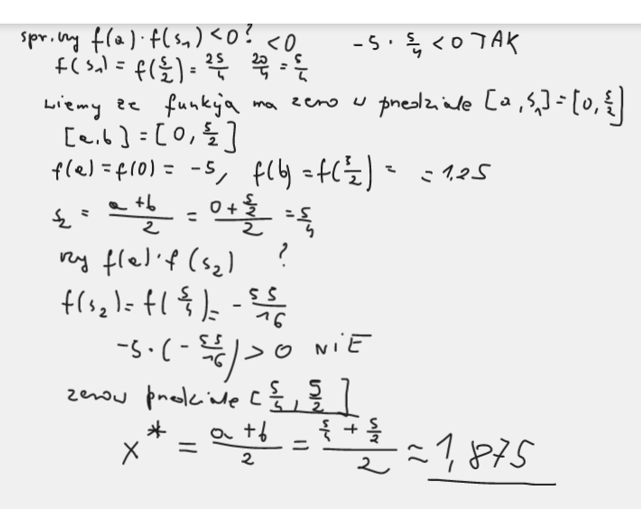 spr. czy f(a)·f(s₁)<0? <0 -5 · 5/4 < 0 TAK
f(s₁) = f(5/2) = 25/4 20/4 = 5/4
wiemy że funkcja ma zero w przedziale [a, s₁] = [0, 5/2]
[a,b] = [0, 5/2]
f(a) = f(0) = -5, f(b) = f(5/2) = = 1,25
s₂ = a+b/2 = 0+5/2/2 = 5/4
czy f(a)·f(s₂) ?
f(s₂) = f(5/4) = -55/16
-5·(-55/16) > 0 NIE
zero w przedziale [5/4, 5/2]
x* = a+b/2 = 5/4 + 5/2/2 = 1,875